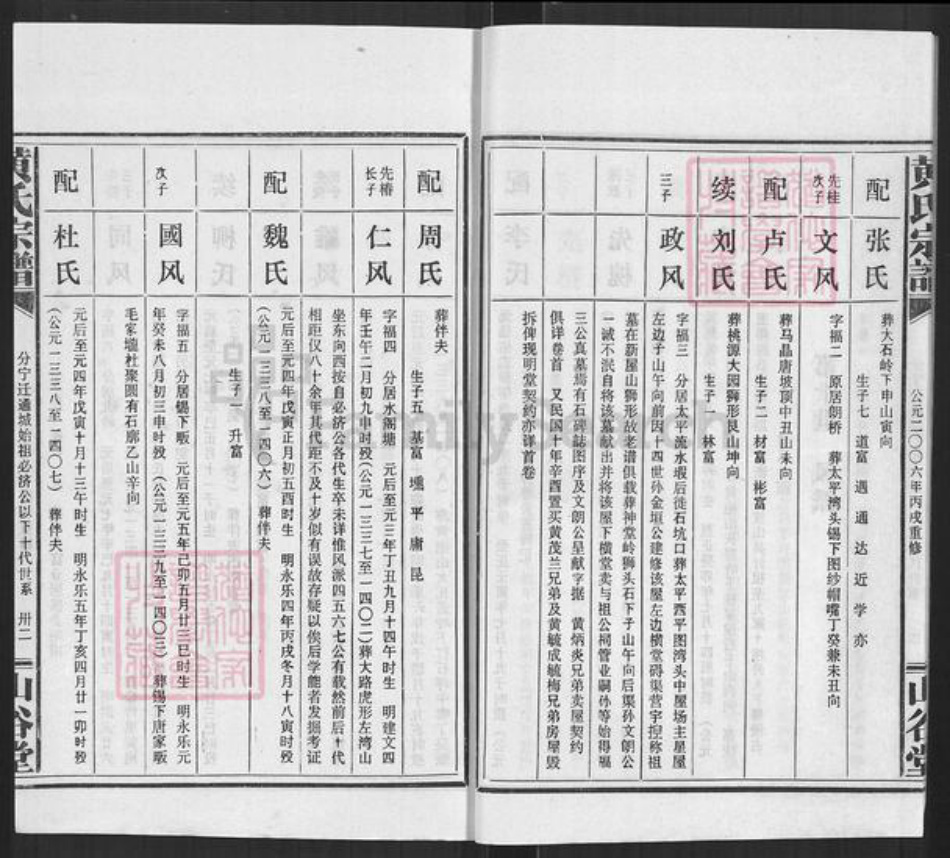 黄氏宗譜
公元二〇〇六年丙戌重修
山谷堂
配 张氏
葬大石岭下申山寅向
生子七 道富 遇 通 达 近 学 亦
先桂次子 文风
字福二 原居朗桥 葬太平湾头锡下图纱帽嘴丁癸兼未丑向
配 卢氏
葬马晶唐坡顶中丑山未向
生子二 材富 彬富
续 刘氏
葬桃源大园狮形艮山坤向
生子一 林富
三子 政风
字福三 分居太平流水瑕后徙石坑口葬太平西平图湾头中屋场主星屋
左边子山午向前因十四世孙金垣公建修该屋左边横堂碍渠营宇捏称祖
墓在新屋山狮形故老谱俱载葬神堂岭狮头石下子山午向后渠孙文朗公
一诚不泯自将该墓献出并将该屋下横堂卖与祖公祠管业嗣孙等始得瑕
三公真墓焉有石碑誌图序及文朗公呈献字据 黄炳炎兄弟卖屋契约
俱详卷首 又民国十年辛酉置买黄茂兰兄弟及黄毓成毓梅兄弟房屋毁
拆俾现明堂契约亦详首卷
配 周氏
葬伴夫
生子五 基富 壎 平 庸 昆
先椿长子 仁风
字福四 分居水阁塘 元后至元三年丁丑九月十四午时生 明建文四
年壬午二月初九申时殁(公元一三三七至一四〇二)葬大路虎形左湾山
坐东向西按自必济公各代生卒未详惟风派四五六七公有载然前后十代
相距仅八十余年其代距不及十岁似有误故存疑以俟后学能者发掘考证
配 魏氏
元后至元四年戊寅正月初五酉时生 明永乐四年丙戌冬月十八寅时殁
(公元一三三八至一四〇六) 葬伴夫
生子一 升富
次子 國风
字福五 分居锡下畈 元后至元五年己卯五月廿三巳时生 明永乐元
年癸未八月初三申时殁(公元一三三九至一四〇三)葬锡下唐家畈
毛家壠社聚圆有石廓乙山辛向
配 杜氏
元后至元四年戊寅十月十三午时生 明永乐五年丁亥四月廿一卯时殁
(公元一三三八至一四〇七) 葬伴夫
黄氏宗譜
分宁迁通城始祖必济公以下十代世系 卅二
山谷堂
FamilySearch